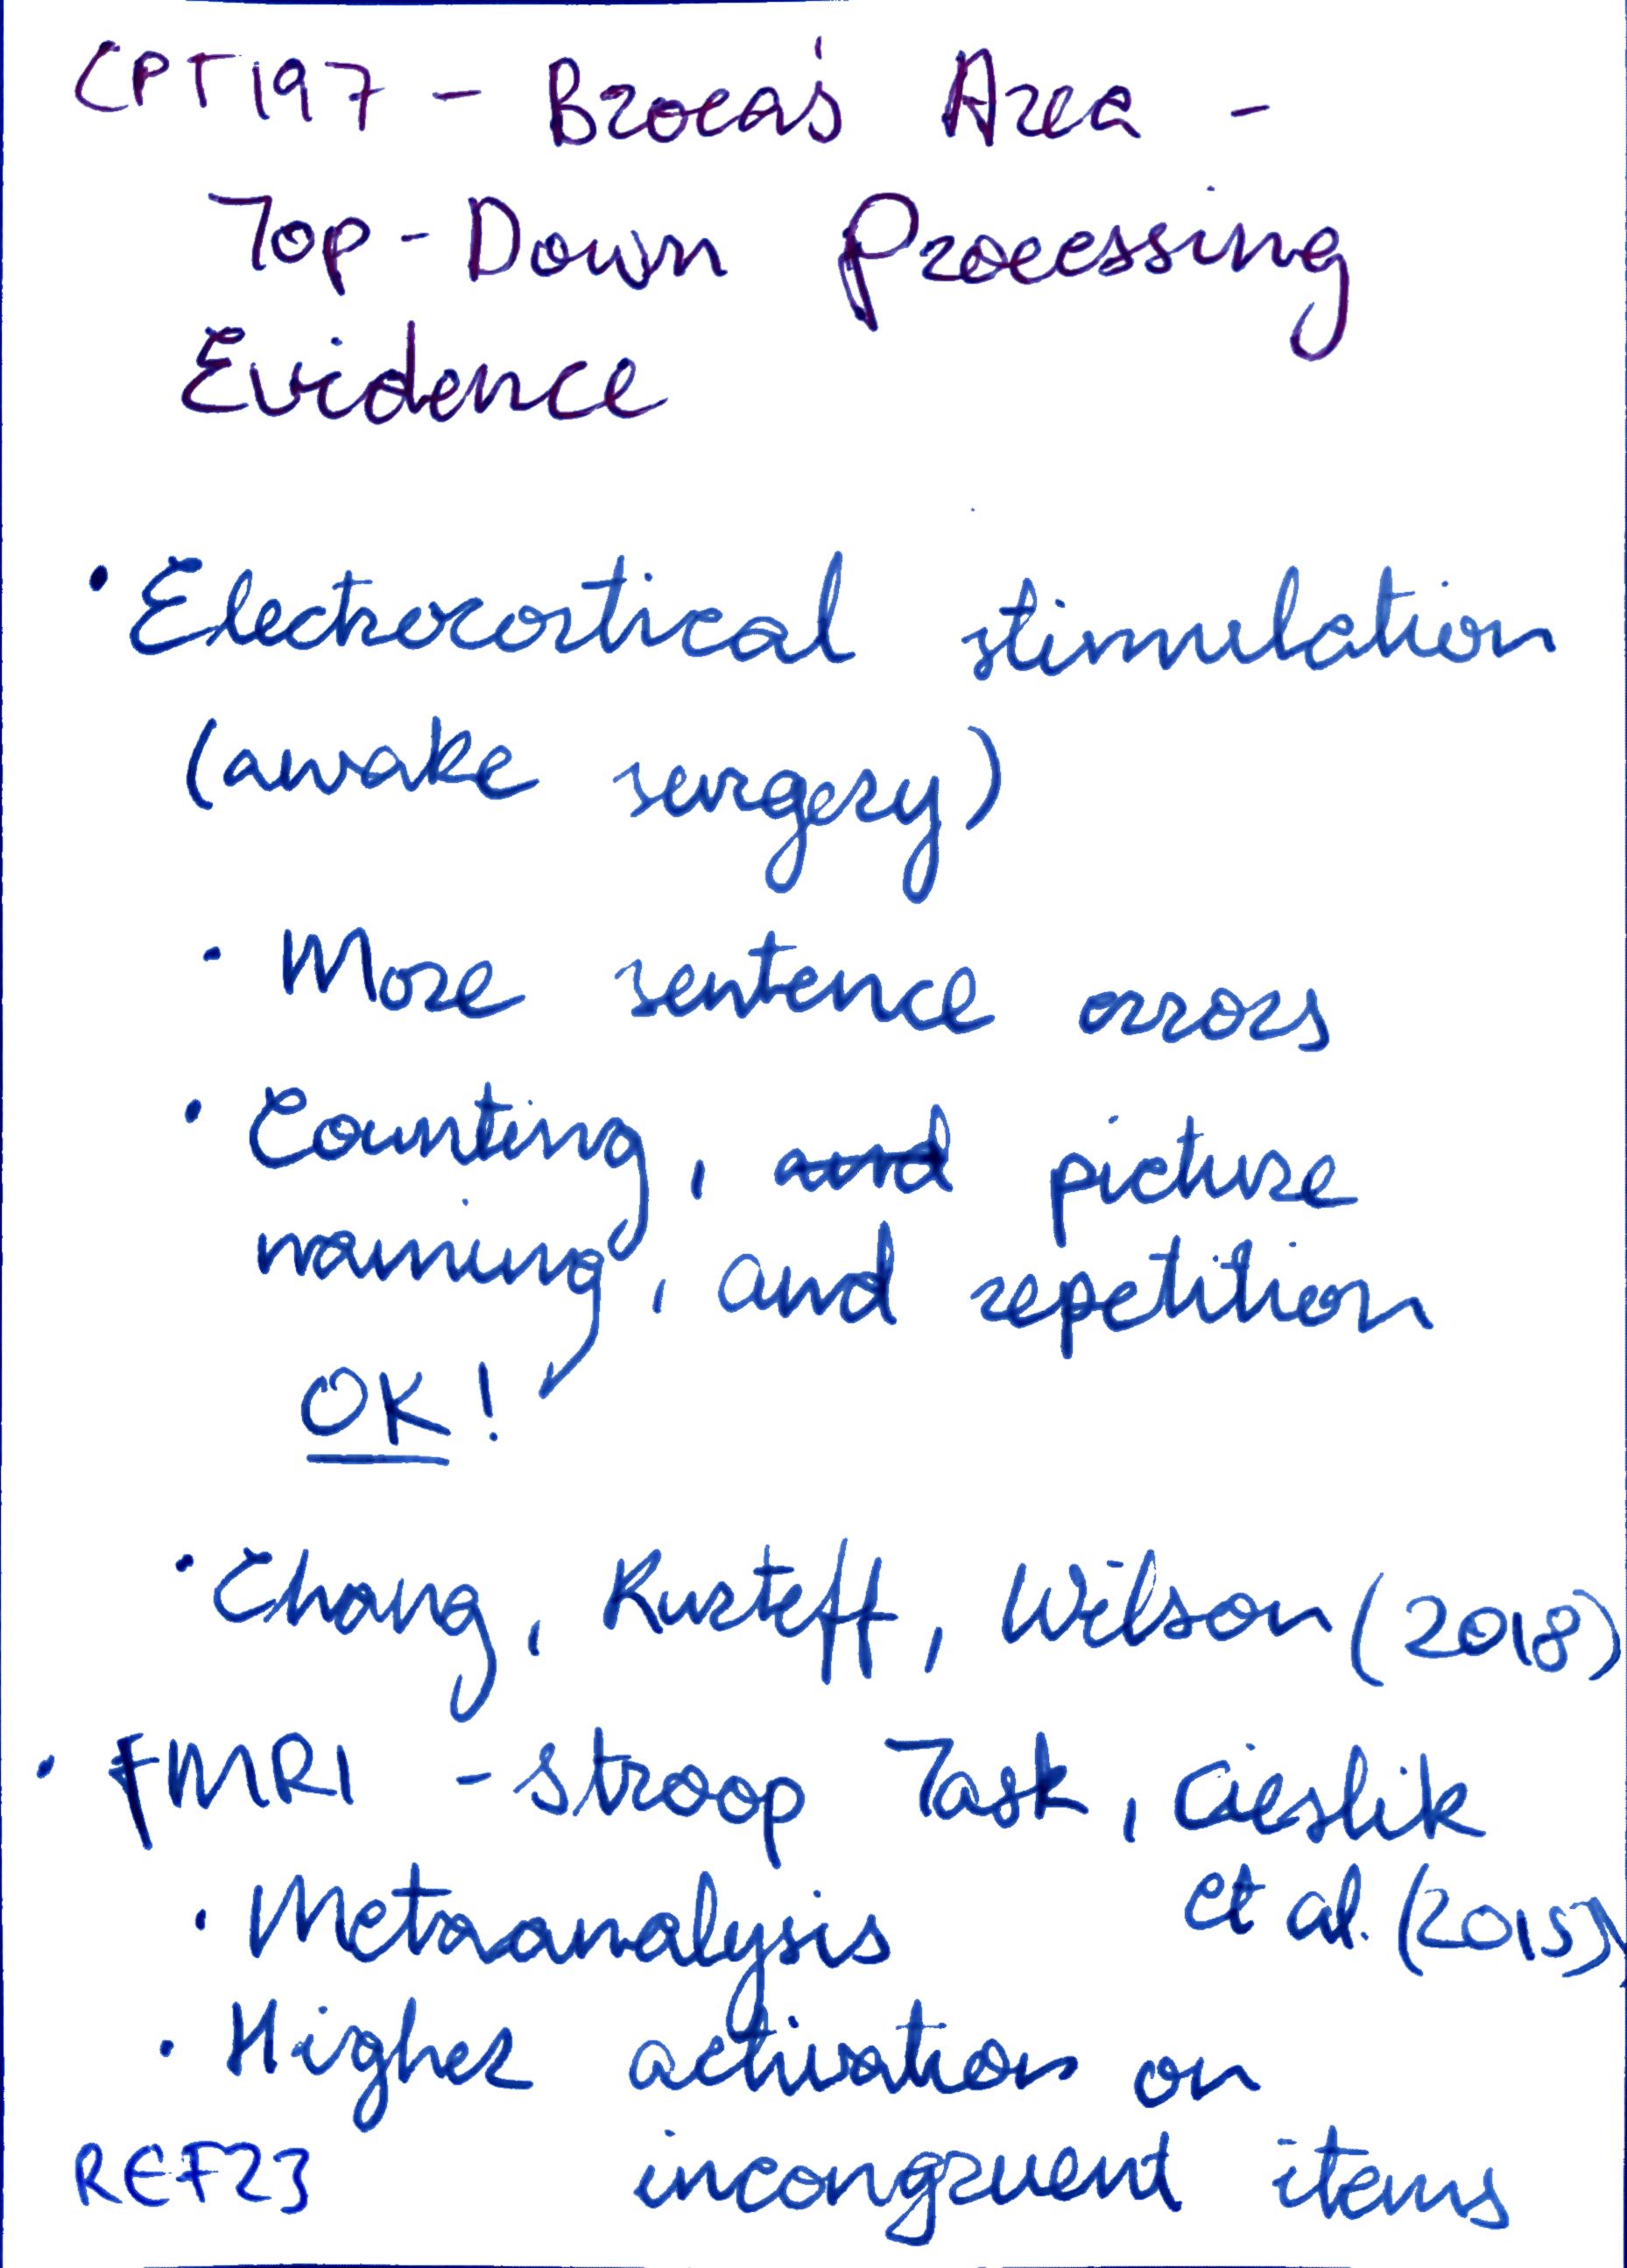 CPT197 - Broca's Area -
Top-Down Processing
Evidence
• Electrocortical stimulation
(awake surgery)
• More sentence errors
• Counting, and picture
naming, and repetition
OK!
• Chang, Kurteff, Wilson (2018)
• fMRI - Stroop Task, Cieslik
et al. (2015)
• Metaanalysis
• Higher activation on
incongruent items
REF23